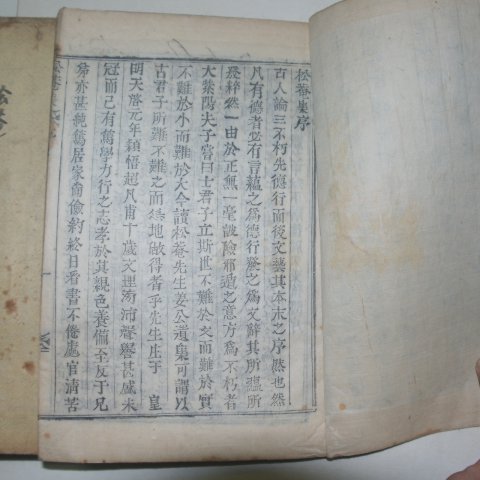 松菴集序
古人論三不朽先德行而後文藝其本末之序然也然
凡有德者必有言蘊之爲德行發之爲文辭其所蘊所
發粹然一由於正無一毫詖險邪遁之意方爲不朽者
大紫陽夫子嘗曰士君子立斯世不難於文而難於實
不難於小而難於大今讀松菴先生姜公遺集可謂以
古君子所難不難之而特地做得者乎先生生于 皇
明天啓元年穎悟超凡甫十歲文理沛聲譽甚盛未
冠而已有篤學力行之志孝於其親色養備至友于兄
弟亦甚純篤居家崇儉約終日看書不倦處官淸苦